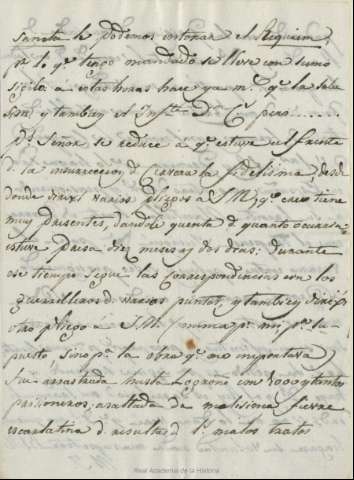 Sancta le podemos entonar el Requiem,
p.r lo q.e tengo mandado se lleve con sumo
sigilo: á estas horas hace ya m.s q.e la sabe
y tambien el Inf.te D.n C pero......
p.s Señor se reduce á q.e estuve al frente
de la insurreccion de Cervera la fidelisima, desde
donde dirixi varios pliegos a S.M, q.e creo tiene
muy presentes, dandole quenta de quanto ocurria:
estuve presa diez meses y dos dias: durante
ese tiempo segui las correspondencias con los
guerrilleros de varios puntos, y tambien dirixi
otro pliego á S.M. (nunca p.r mi, p.r su-
puesto, sino p.r la obra q.e me importava)
fui arrastrada hasta Logroño con 1000 y tantos
prisioneros; asaltada de malisima fievre
escarlatina de resultas de l.s malos tratos
Real Academia de la Historia